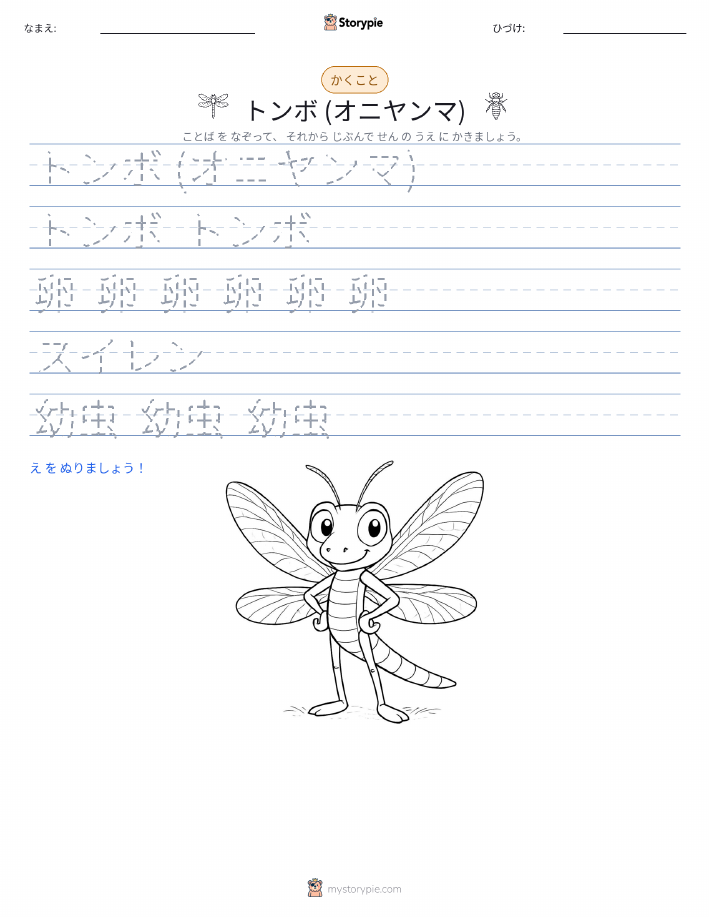 なまえ:
Storypie
ひづけ:
かくこと
トンボ (オニヤンマ)
ことば を なぞって、 それから じぶんで せん の うえ に かきましょう。
トンボ (オニヤンマ)
トンボ トンボ
卵 卵 卵 卵 卵 卵
スイレン
幼虫 幼虫 幼虫
え を ぬりましょう！
mystorypie.com